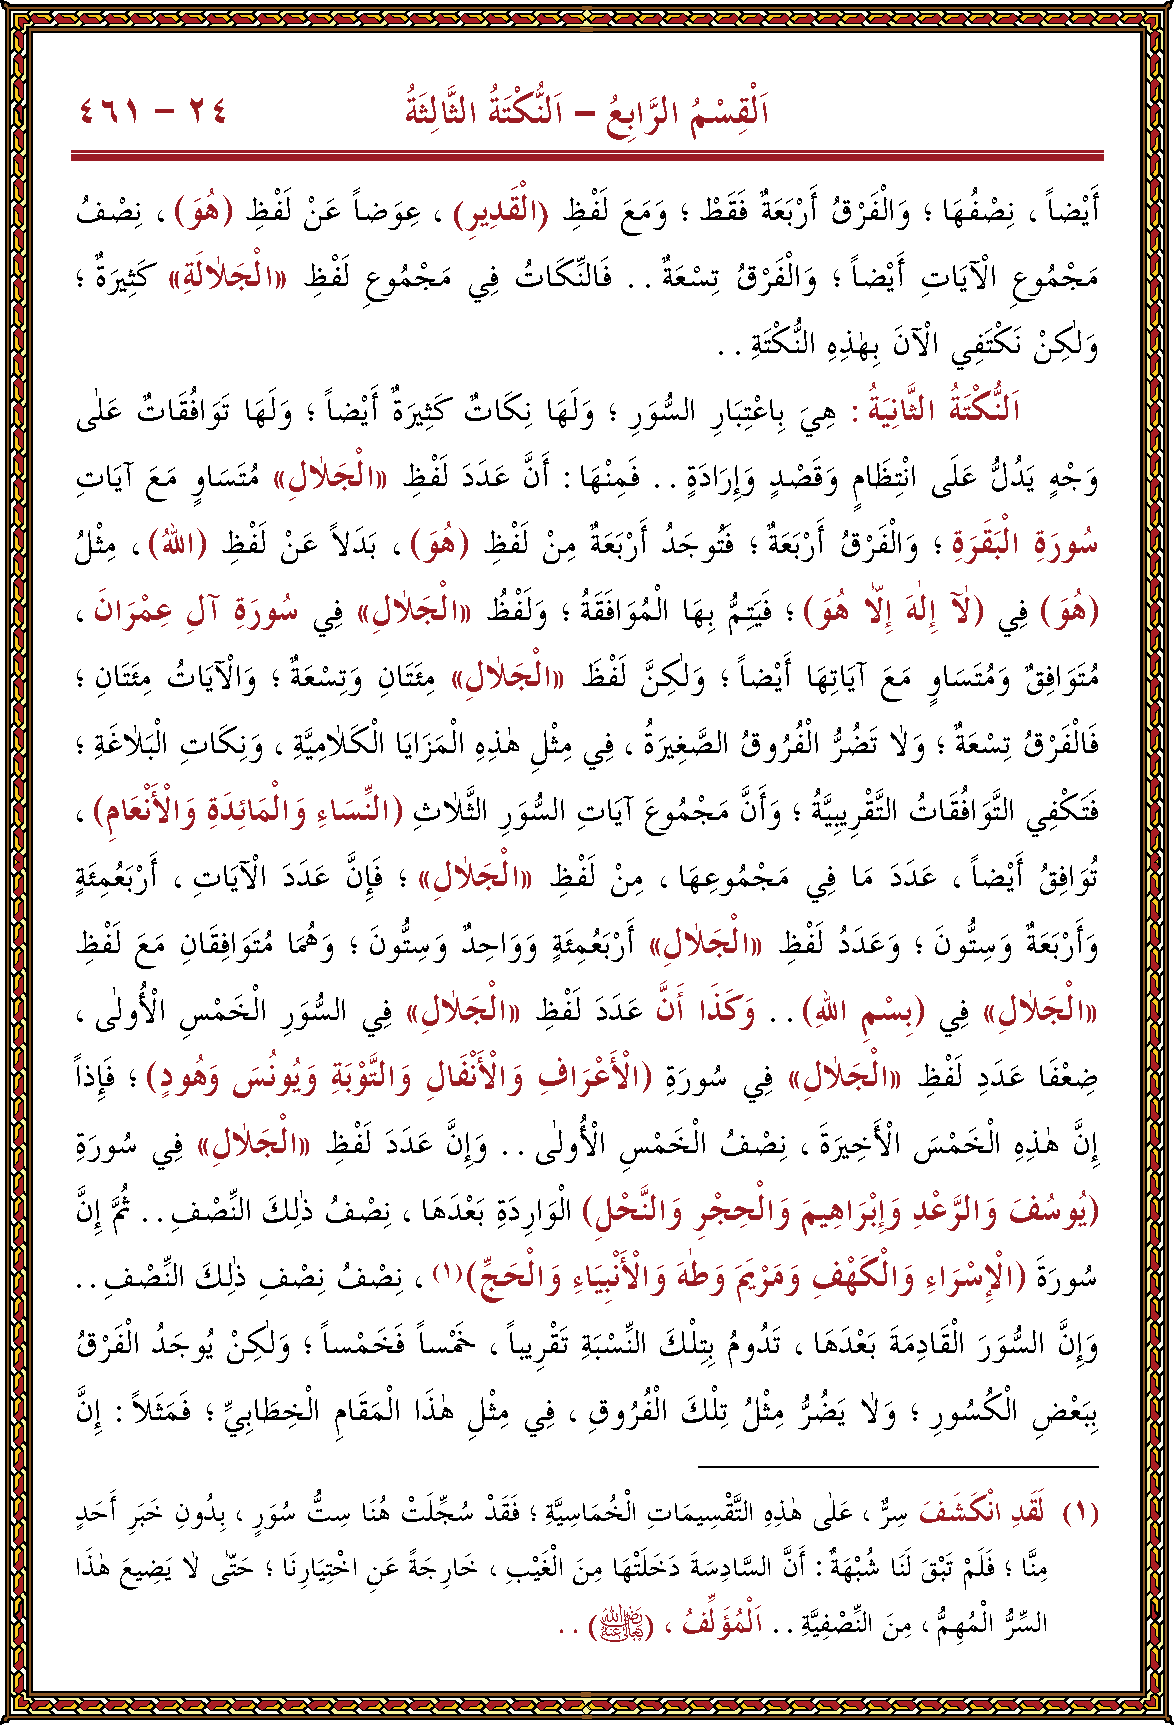 اَلْقِسْمُ الرَّابِعُ – اَلنُّكْتَةُ الثَّالِثَةُ
٢٤ – ٤٦١
أَيْضاً ، نِصْفُهَا ؛ وَالْفَرْقُ أَرْبَعَةٌ فَقَطْ ؛ وَمَعَ لَفْظِ (الْقَدِيرِ) ، عِوَضاً عَنْ لَفْظِ (هُوَ) ، نِصْفُ
مَجْمُوعِ الْآيَاتِ أَيْضاً ؛ وَالْفَرْقُ تِسْعَةٌ . . فَالنِّكَاتُ فِي مَجْمُوعِ لَفْظِ «الْجَلَالَةِ» كَثِيرَةٌ ؛
وَلٰكِنْ نَكْتَفِي الْآنَ بِهٰذِهِ النُّكْتَةِ . .
اَلنُّكْتَةُ الثَّانِيَةُ : هِيَ بِاعْتِبَارِ السُّوَرِ ؛ وَلَهَا نِكَاتٌ كَثِيرَةٌ أَيْضاً ؛ وَلَهَا تَوَافُقَاتٌ عَلٰى
وَجْهٍ يَدُلُّ عَلَى انْتِظَامٍ وَقَصْدٍ وَإِرَادَةٍ . . فَمِنْهَا : أَنَّ عَدَدَ لَفْظِ «الْجَلَالِ» مُتَسَاوٍ مَعَ آيَاتِ
سُورَةِ الْبَقَرَةِ ؛ وَالْفَرْقُ أَرْبَعَةٌ ؛ فَتُوجَدُ أَرْبَعَةٌ مِنْ لَفْظِ (هُوَ) ، بَدَلاً عَنْ لَفْظِ (اللهُ) ، مِثْلُ
(هُوَ) فِي (لَآ إِلٰهَ إِلَّا هُوَ) ؛ فَيَتِمُّ بِهَا الْمُوَافَقَةُ ؛ وَلَفْظُ «الْجَلَالِ» فِي سُورَةِ آلِ عِمْرَانَ ،
مُتَوَافِقٌ وَمُتَسَاوٍ مَعَ آيَاتِهَا أَيْضاً ؛ وَلٰكِنَّ لَفْظَ «الْجَلَالِ» مِئَتَانِ وَتِسْعَةٌ ؛ وَالْآيَاتُ مِئَتَانِ ؛
فَالْفَرْقُ تِسْعَةٌ ؛ وَلَا تَضُرُّ الْفُرُوقُ الصَّغِيرَةُ ، فِي مِثْلِ هٰذِهِ الْمَزَايَا الْكَلَامِيَّةِ ، وَنِكَاتِ الْبَلَاغَةِ ؛
فَتَكْفِي التَّوَافُقَاتُ التَّقْرِيبِيَّةُ ؛ وَأَنَّ مَجْمُوعَ آيَاتِ السُّوَرِ الثَّلَاثِ (النِّسَاءِ وَالْمَائِدَةِ وَالْأَنْعَامِ) ،
تُوَافِقُ أَيْضاً ، عَدَدَ مَا فِي مَجْمُوعِهَا ، مِنْ لَفْظِ «الْجَلَالِ» ؛ فَإِنَّ عَدَدَ الْآيَاتِ ، أَرْبَعُمِئَةٍ
وَأَرْبَعَةٌ وَسِتُّونَ ؛ وَعَدَدُ لَفْظِ «الْجَلَالِ» أَرْبَعُمِئَةٍ وَوَاحِدٌ وَسِتُّونَ ؛ وَهُمَا مُتَوَافِقَانِ مَعَ لَفْظِ
«الْجَلَالِ» فِي (بِسْمِ اللهِ) . . وَكَذَا أَنَّ عَدَدَ لَفْظِ «الْجَلَالِ» فِي السُّوَرِ الْخَمْسِ الْأُولٰى ،
ضِعْفَا عَدَدِ لَفْظِ «الْجَلَالِ» فِي سُورَةِ (الْأَعْرَافِ وَالْأَنْفَالِ وَالتَّوْبَةِ وَيُونُسَ وَهُودٍ) ؛ فَإِذاً
إِنَّ هٰذِهِ الْخَمْسَ الْأَخِيرَةَ ، نِصْفُ الْخَمْسِ الْأُولٰى . . وَإِنَّ عَدَدَ لَفْظِ «الْجَلَالِ» فِي سُورَةِ
(يُوسُفَ وَالرَّعْدِ وَإِبْرَاهِيمَ وَالْحِجْرِ وَالنَّحْلِ) الْوَارِدَةِ بَعْدَهَا ، نِصْفُ ذٰلِكَ النِّصْفِ . . ثُمَّ إِنَّ
سُورَةَ (الْإِسْرَاءِ وَالْكَهْفِ وَمَرْيَمَ وَطٰهَ وَالْأَنْبِيَاءِ وَالْحَجِّ)(١) ، نِصْفُ نِصْفِ ذٰلِكَ النِّصْفِ . .
وَإِنَّ السُّوَرَ الْقَادِمَةَ بَعْدَهَا ، تَدُومُ بِتِلْكَ النِّسْبَةِ تَقْرِيباً ، خَمْساً فَخَمْساً ؛ وَلٰكِنْ يُوجَدُ الْفَرْقُ
بِبَعْضِ الْكُسُورِ ؛ وَلَا يَضُرُّ مِثْلُ تِلْكَ الْفُرُوقِ ، فِي مِثْلِ هٰذَا الْمَقَامِ الْخِطَابِيِّ ؛ فَمَثَلاً : إِنَّ
(١) لَقَدِ انْكَشَفَ سِرٌّ ، عَلٰى هٰذِهِ التَّقْسِيمَاتِ الْخُمَاسِيَّةِ ؛ فَقَدْ سُجِّلَتْ هُنَا سِتُّ سُوَرٍ ، بِدُونِ خَبَرِ أَحَدٍ
مِنَّا ؛ فَلَمْ تَبْقَ لَنَا شُبْهَةٌ : أَنَّ السَّادِسَةَ دَخَلَتْهَا مِنَ الْغَيْبِ ، خَارِجَةً عَنِ اخْتِيَارِنَا ؛ حَتّٰى لَا يَضِيعَ هٰذَا
السِّرُّ الْمُهِمُّ ، مِنَ النِّصْفِيَّةِ . . اَلْمُؤَلِّفُ ، (رَضِيَ اللهُ تَعَالَى عَنْهُ) . .